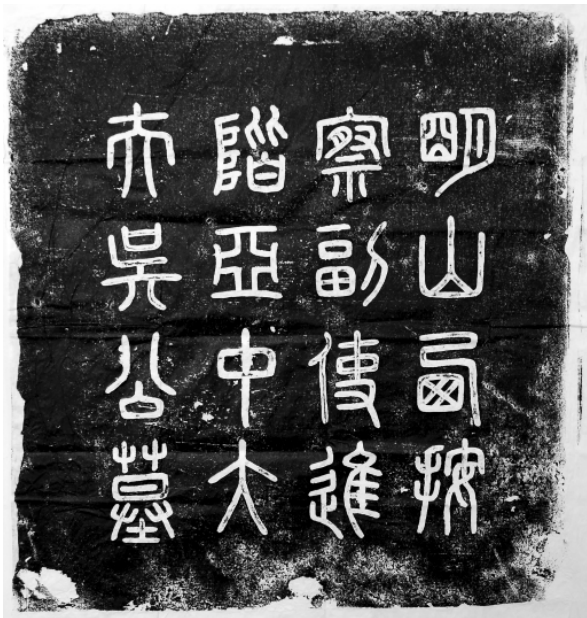 明山西按
察副使進
階亞中大
夫吳公墓